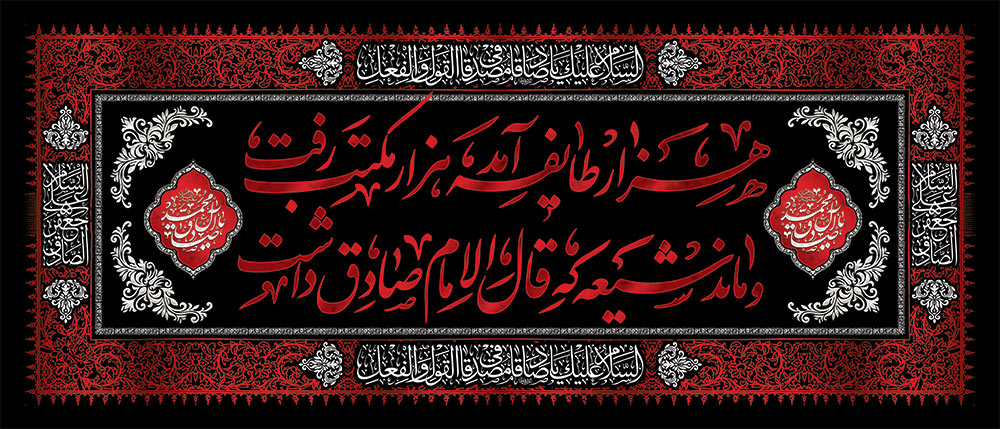 السلام علیک یا صادقا مصدقا فی القول و الفعل
هزار طایفه آمد هزار مکتب رفت
و ماند شیعه که قال الامام صادق داشت
السلام علی جعفر الصادق
السلام علی جعفر الصادق
السلام علیک یا صادقا مصدقا فی القول و الفعل